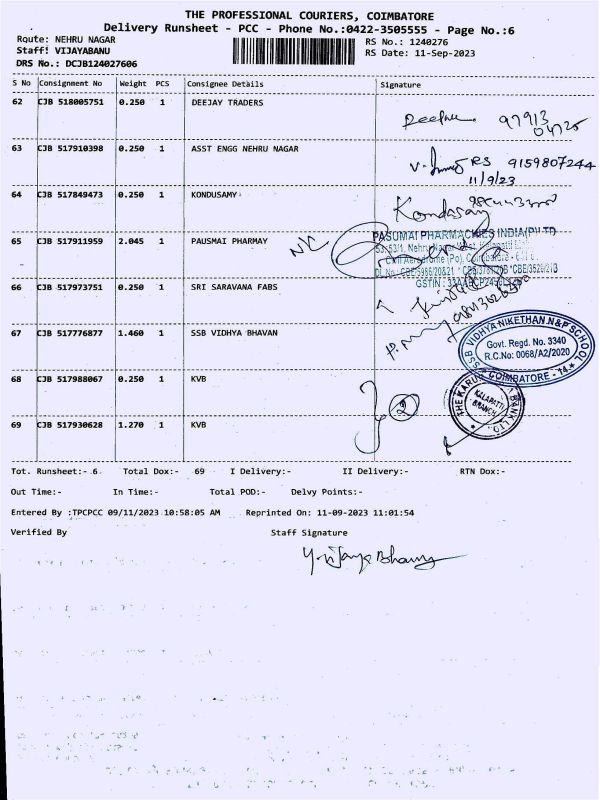 THE PROFESSIONAL COURIERS, COIMBATORE
Delivery Runsheet - PCC - Phone No.:0422-3505555 - Page No.:6
Route: NEHRU NAGAR
RS No.: 1240276
Staff: VIJAYABANU
RS Date: 11-Sep-2023
DRS No.: DCJB124027606
S No Consignment No Weight PCS Consignee Details Signature
62 CJB 518005751 0.250 1 DEEJAY TRADERS
97913
04725
63 CJB 517910398 0.250 1 ASST ENGG NEHRU NAGAR
RS 9159807244
11/9/23
64 CJB 517849473 0.250 1 KONDUSAMY
Kondasamy
65 CJB 517911959 2.045 1 PAUSMAI PHARMAY
PASUMAI PHARMACHIES INDIA(P)LTD
66 CJB 517973751 0.250 1 SRI SARAVANA FABS
67 CJB 517776877 1.460 1 SSB VIDHYA BHAVAN
SSB VIDHYA NIKETHAN N&P SCHOOL
Govt. Regd. No. 3340
R.C.No: 0068/A2/2020
COIMBATORE - 14
68 CJB 517988067 0.250 1 KVB
2
KALAPATTI
BRANCH
69 CJB 517930628 1.270 1 KVB
Tot. Runsheet:- 6 Total Dox:- 69 I Delivery:- II Delivery:- RTN Dox:-
Out Time:- In Time:- Total POD:- Delvy Points:-
Entered By :TPCPCC 09/11/2023 10:58:05 AM Reprinted On: 11-09-2023 11:01:54
Verified By Staff Signature